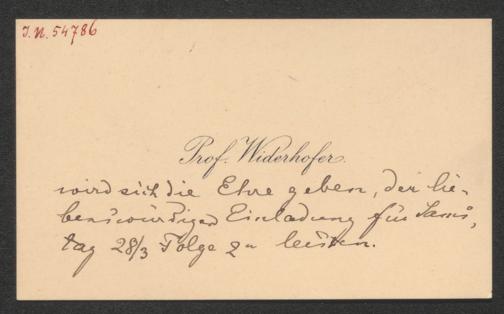 J.N. 54786
Prof. Widerhofer.
wird sich die Ehre geben, der lie-
benswürdigen Einladung für Sams,
tag 28/3 Folge zu leisten.